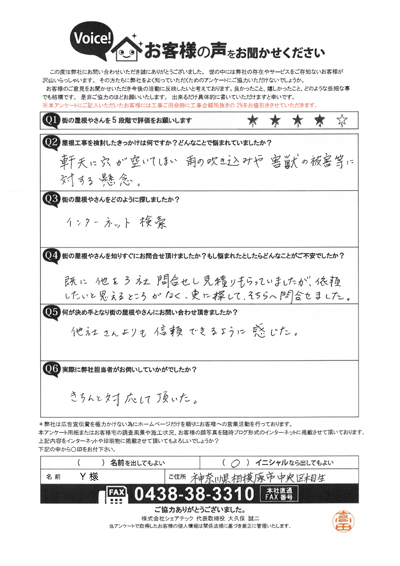 Voice! お客様の声をお聞かせください
この度は弊社にお問い合わせいただき誠にありがとうございました。世の中には弊社の存在やサービスをご存知ないお客様が
沢山いらっしゃいます。その方たちに弊社をよく知っていただくためのアンケートにご協力いただけないでしょうか。
お客様のご意見をお聞かせいただき今後の活動に反映したいと考えております。良かったこと、嬉しかったこと、どのような些細な事
でも結構です。是非ご協力のほどお願いいたします。出来るだけ具体的に書いていただけますと幸いです。
※本アンケートにご記入いただいたお客様には工事ご用命時に工事金額税抜きの2%をお値引きさせていただきます。
Q1 街の屋根やさんを5段階で評価をお願いします ★ ★ ★ ★ ☆
Q2 屋根工事を検討したきっかけは何ですか?どんなことで悩まれていましたか?
軒天に穴が空いてしまい 雨の吹き込みや 害獣の被害等に
対する懸念。
Q3 街の屋根やさんをどのように探しましたか?
インターネット検索
Q4 街の屋根やさんを知りすぐにお問合せ頂けましたか?もし悩まれたとしたらどんなことがご不安でしたか?
既に他を3社問合せし見積りもらっていましたが、依頼
したいと思えるところがなく、更に探して、そちらへ問合せました。
Q5 何が決め手となり街の屋根やさんにお問い合わせ頂きましたか?
他社さんよりも信頼できるように感じた。
Q6 実際に弊社担当者がお伺いしていかがでしたか?
きちんと対応して頂いた。
*弊社は広告宣伝費を極力かけない為にホームページだけを頼りにお客様への営業活動を行っております。
本アンケート用紙またはお客様宅の調査風景や施工状況、お客様の顔写真を随時ブログ形式のインターネットに掲載させて頂いております。
上記内容をインターネットや印刷物に掲載させて頂いてもよろしいでしょうか?
下記の中から〇印をお付け下さい。
( )名前を出してもよい (〇)イニシャルなら出してもよい
名前 Y 様 ご住所 神奈川県相模原市中央区相生
FAX 0438-38-3310 本社直通 FAX番号
ご協力ありがとうございました。
株式会社シェアテック 代表取締役 大久保 誠二
当アンケートで取得したお客様の個人情報は関係法規に基づき厳正に管理いたします。